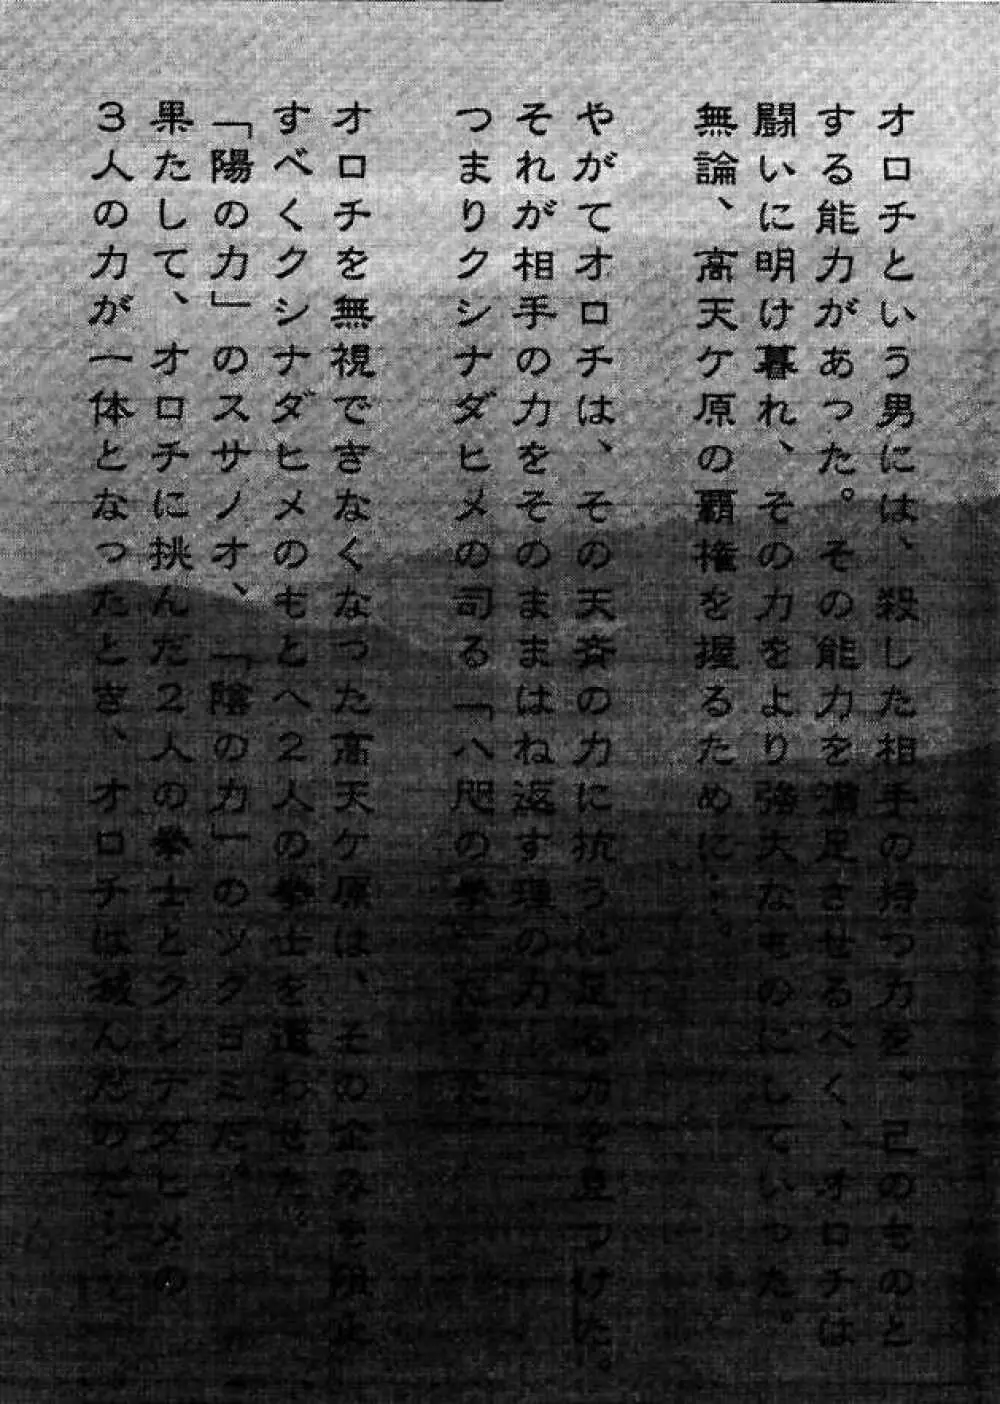 オロチという男には、殺した相手の持つ力を、己のものと
する能力があった。その能力を満足させるべく、オロチは
闘いに明け暮れ、その力をより強大なものにしていった。
無論、高天ケ原の覇権を握るために…。
やがてオロチは、その天賚の力に抗うに足る力を見つけた。
それが相手の力をそのままはね返す理の力
つまりクシナダヒメの司る「八咫の拳」だった
オロチを無視できなくなった高天ケ原は、その企みを阻止
すべくクシナダヒメのもとへ2人の拳士を遣わせた。
「陽の力」のスサノオ、「陰の力」のツクヨミだ。
果たして、オロチに挑んだ2人の拳士とクシナダヒメの
3人の力が一体となったとき、オロチは滅んだのだ…